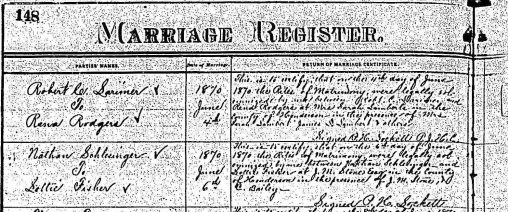 148
MARRIAGE REGISTER.
PARTIES NAMES. Date of Marriage. RETURN OF MARRIAGE CERTIFICATE.
Robert C. Larimer
To
Rena Rodgers
1870
June
4th
This is to certify, that on the 4th day of June
1870 the Rites of Matrimony, were legally sol-
emnized by me between Robt. C. Larimer and
Rena Rodgers at Mrs Sarah Lambert in the
County of Henderson in the presence of Mrs
Sarah Lambert James Lambert & others
Signed P. H. Lockett
Nathan Schlesinger
To
Dottie Fisher
1870
June
6th
This is to certify, that on the 6th day of June
1870 the Rites of Matrimony, were legally sol-
emnized by me between Nathan Schlesinger and
Dottie Fisher at J. M. Stones in this County
of Henderson in the presence of J. M. Stone,
C. Bailey
Signed P. H. Lockett